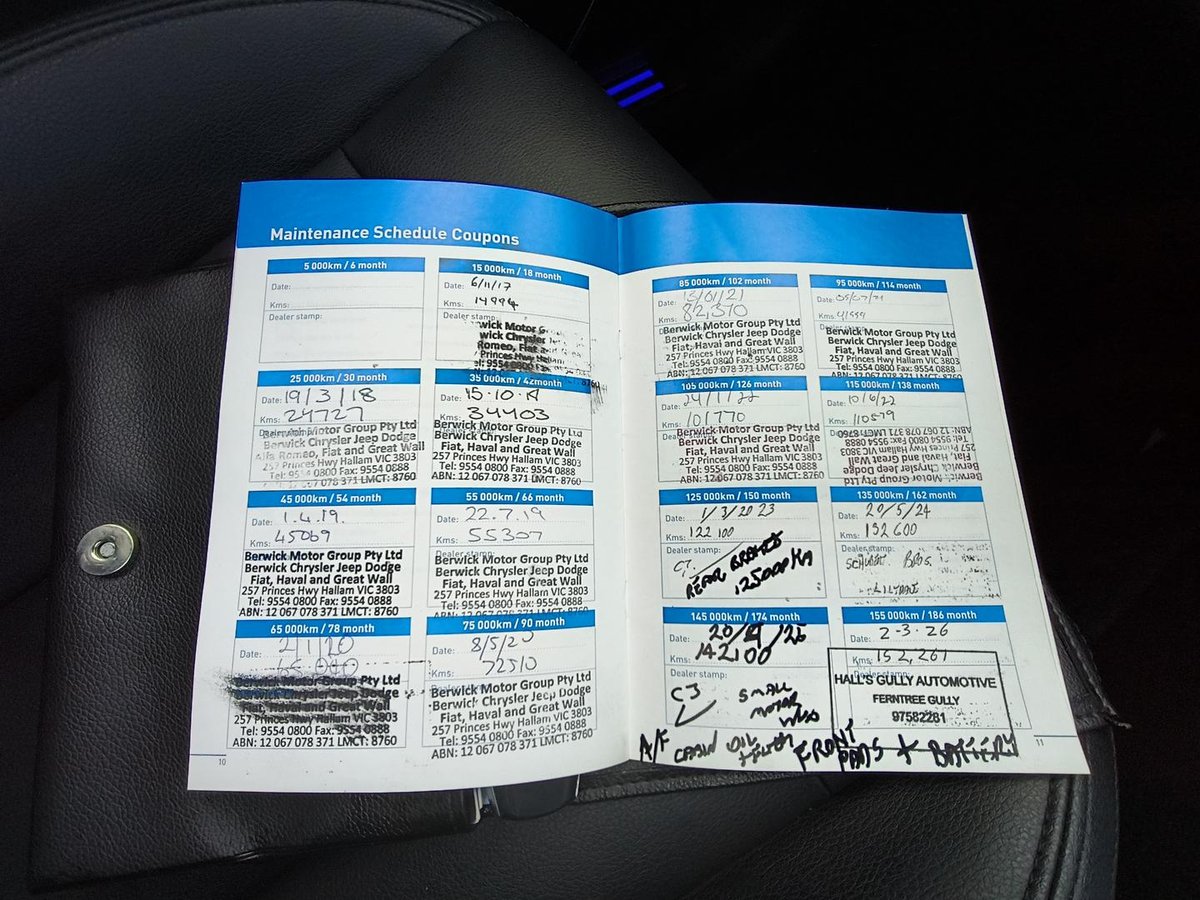 Maintenance Schedule Coupons
5 000km / 6 month
Date:
Kms:
Dealer stamp:
15 000km / 18 month
Date: 6/11/17
Kms: 14994
wick Motor G
wick Chrysler
Romeo, Fiat
Princes Hwy Hallam
el: 9554 0800
8760
25 000km / 30 month
Date: 19/3/18
Kms: 24727
Dealer stamp:
Berwick Motor Group Pty Ltd
Berwick Chrysler Jeep Dodge
Alfa Romeo, Fiat and Great Wall
257 Princes Hwy Hallam VIC 3803
Tel: 9554 0800 Fax: 9554 0888
ABN: 12 067 078 371 LMCT: 8760
35 000km / 42month
Date: 15.10.
Kms: 34403
Berwick Motor Group Pty Ltd
Berwick Chrysler Jeep Dodge
Fiat, Haval and Great Wall
257 Princes Hwy Hallam VIC 3803
Tel: 9554 0800 Fax: 9554 0888
ABN: 12 067 078 371 LMCT: 8760
45 000km / 54 month
Date: 1.4.19.
Kms: 45069
Berwick Motor Group Pty Ltd
Berwick Chrysler Jeep Dodge
Fiat, Haval and Great Wall
257 Princes Hwy Hallam VIC 3803
Tel: 9554 0800 Fax: 9554 0888
ABN: 12 067 078 371 LMCT: 8760
55 000km / 66 month
Date: 22.7.19
Kms: 55307
Dealer stamp:
Berwick Motor Group Pty Ltd
Berwick Chrysler Jeep Dodge
Fiat, Haval and Great Wall
257 Princes Hwy Hallam VIC 3803
Tel: 9554 0800 Fax: 9554 0888
ABN: 12 067 078 371 LMCT: 8760
65 000km / 78 month
Date: 2/1/20
Kms:
Berwick Motor Group Pty Ltd
Berwick Chrysler Jeep Dodge
Fiat, Haval and Great Wall
257 Princes Hwy Hallam VIC 3803
Tel: 9554 0800 Fax: 9554 0888
ABN: 12 067 078 371 LMCT: 8760
75 000km / 90 month
Date: 8/5/20
Kms: 72510
Berwick Motor Group Pty Ltd
Berwick Chrysler Jeep Dodge
Fiat, Haval and Great Wall
257 Princes Hwy Hallam VIC 3803
Tel: 9554 0800 Fax: 9554 0888
ABN: 12 067 078 371 LMCT: 8760
10
85 000km / 102 month
Date: 13/01/21
Kms: 82,370
Berwick Motor Group Pty Ltd
Berwick Chrysler Jeep Dodge
Fiat, Haval and Great Wall
257 Princes Hwy Hallam VIC 3803
Tel: 9554 0800 Fax: 9554 0888
ABN: 12 067 078 371 LMCT: 8760
95 000km / 114 month
Date: 05/07/21
Kms:
Dealer stamp:
Berwick Motor Group Pty Ltd
Berwick Chrysler Jeep Dodge
Fiat, Haval and Great Wall
257 Princes Hwy Hallam VIC 3803
Tel: 9554 0800 Fax: 9554 0888
ABN: 12 067 078 371 LMCT: 8760
105 000km / 126 month
Date: 24/1/22
Kms: 101770
Berwick Motor Group Pty Ltd
Berwick Chrysler Jeep Dodge
Fiat, Haval and Great Wall
257 Princes Hwy Hallam VIC 3803
Tel: 9554 0800 Fax: 9554 0888
ABN: 12 067 078 371 LMCT: 8760
115 000km / 138 month
Date: 10/6/22
Kms: 110579
Berwick Motor Group Pty Ltd
Berwick Chrysler Jeep Dodge
Fiat, Haval and Great Wall
257 Princes Hwy Hallam VIC 3803
Tel: 9554 0800 Fax: 9554 0888
ABN: 12 067 078 371 LMCT: 8760
125 000km / 150 month
Date: 1/3/2023
Kms: 122 100
Dealer stamp:
REAR BRAKES
125000 KM
135 000km / 162 month
Date: 20/5/24
Kms: 132 600
Dealer stamp:
BROS.
LILYDALE
145 000km / 174 month
Date: 20/4/25
Kms: 142,100
Dealer stamp:
CJ SMALL
MOTOR
A/F CABIN OIL
FILTER
155 000km / 186 month
Date: 2-3-26
Kms: 152,261
Dealer stamp:
HALL'S GULLY AUTOMOTIVE
FERNTREE GULLY
97582281
FRONT
PADS + BATTERY
11